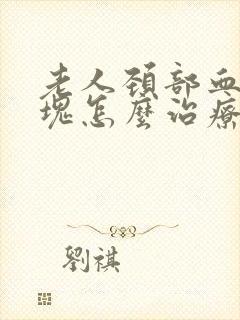 老人頸部血
塊怎麼治療
劉祺